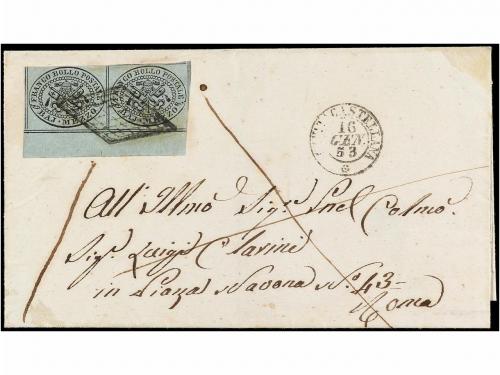 FRANCO BOLLO POSTALE
FRANCO BOLLO POSTALE
MEZZO
CASTELLANA
16
GEN
53
All' Illmo Sigr Pnel Colmo.
Sigr Luigi Clarini
in Piazza Navona No. 43-
Roma